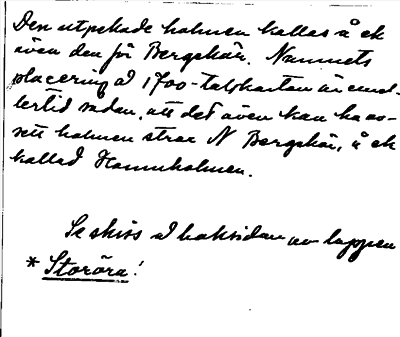 Den utpekade holmen kallas å ek
även den för Bergskär. Namnets
placering å 1700-talskartan är emel-
lertid sådan, att det även kan ha av-
sett holmen strax N Bergskär, å ek
kallad Hamnholmen.
Se skiss å baksidan av lappen
* Storöra!